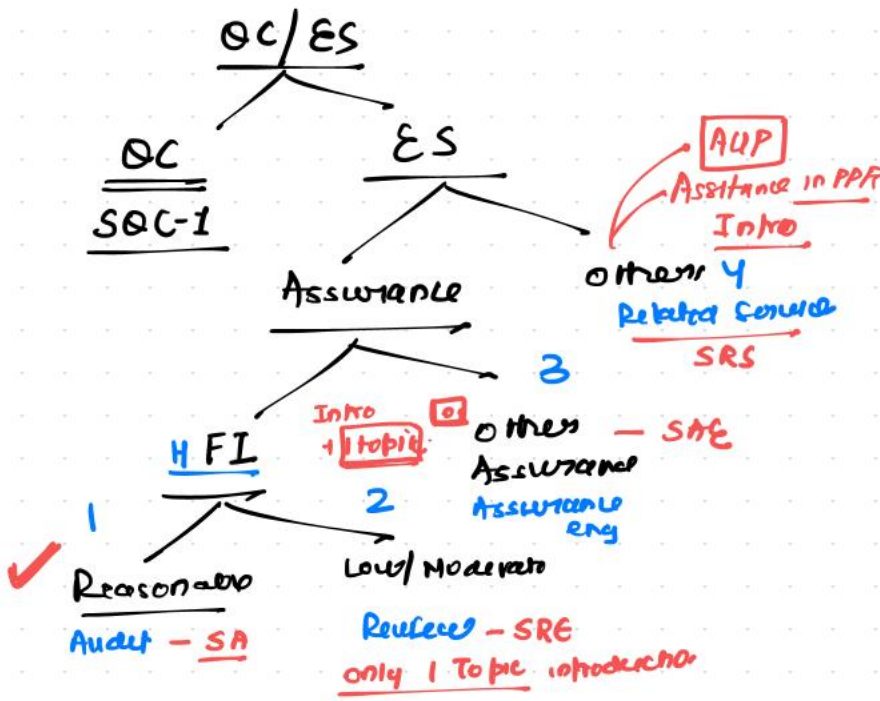 QC/ES
QC
SQC-1
ES
AUP
Assitance in PPF
Intro
Assurance
others 4
Related Service
SRS
3
Intro
+ 1 topic
0
others - SAE
Assurance
Assurance
eng
H FI
1
2
Reasonable
Audit - SA
Low/Moderate
Review - SRE
only 1 Topic introduction